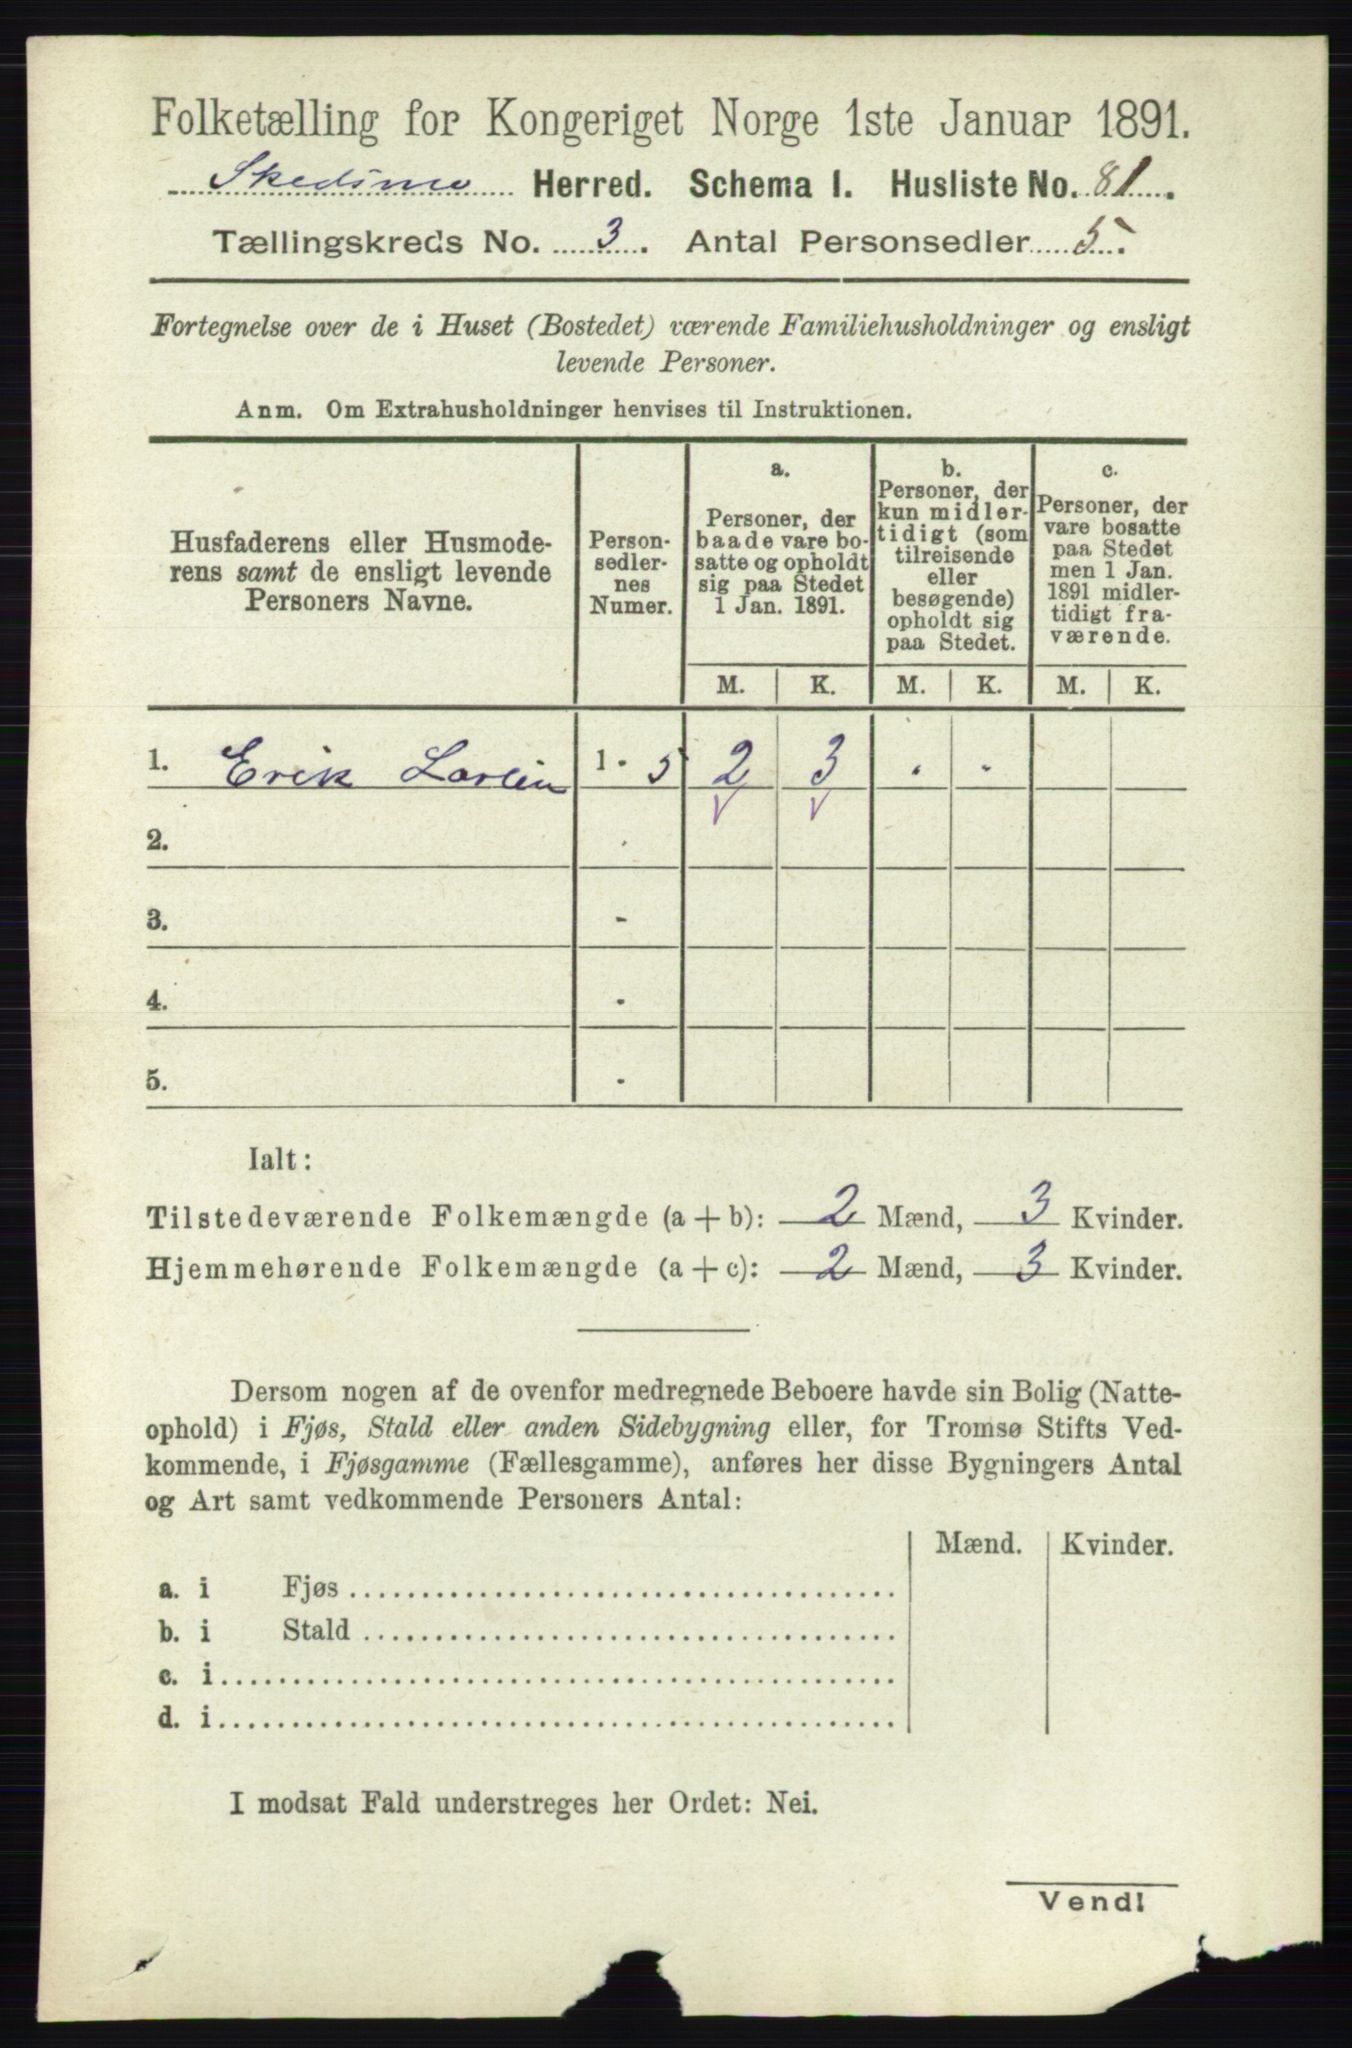 Folketælling for Kongeriget Norge 1ste Januar 1891.
Skedsmo Herred. Schema 1. Husliste No. 81.
Tællingskreds No. 3. Antal Personsedler 5.
Fortegnelse over de i Huset (Bostedet) værende Familiehusholdninger og ensligt
levende Personer.
Anm. Om Extrahusholdninger henvises til Instruktionen.
Husfaderens eller Husmode-
rens samt de ensligt levende
Personers Navne.
Person-
sedler-
nes
Numer.
a.
Personer, der
baade vare bo-
satte og opholdt
sig paa Stedet
1 Jan. 1891.
b.
Personer, der
kun midler-
tidigt (som
tilreisende
eller
besøgende)
opholdt sig
paa Stedet.
c.
Personer, der
vare bosatte
paa Stedet
men 1 Jan.
1891 midler-
tidigt fra-
værende.
M. K. M. K. M. K.
1. Erik 1 - 5 2 3 . .
2. -
3. -
4. -
5. -
Ialt:
Tilstedeværende Folkemængde (a + b): 2 Mænd, 3 Kvinder.
Hjemmehørende Folkemængde (a + c): 2 Mænd, 3 Kvinder.
Dersom nogen af de ovenfor medregnede Beboere havde sin Bolig (Natte-
ophold) i Fjøs, Stald eller anden Sidebygning eller, for Tromsø Stifts Ved-
kommende, i Fjøsgamme (Fællesgamme), anføres her disse Bygningers Antal
og Art samt vedkommende Personers Antal:
Mænd. Kvinder.
a. i Fjøs
b. i Stald
c. i
d. i
I modsat Fald understreges her Ordet: Nei.
Vend!